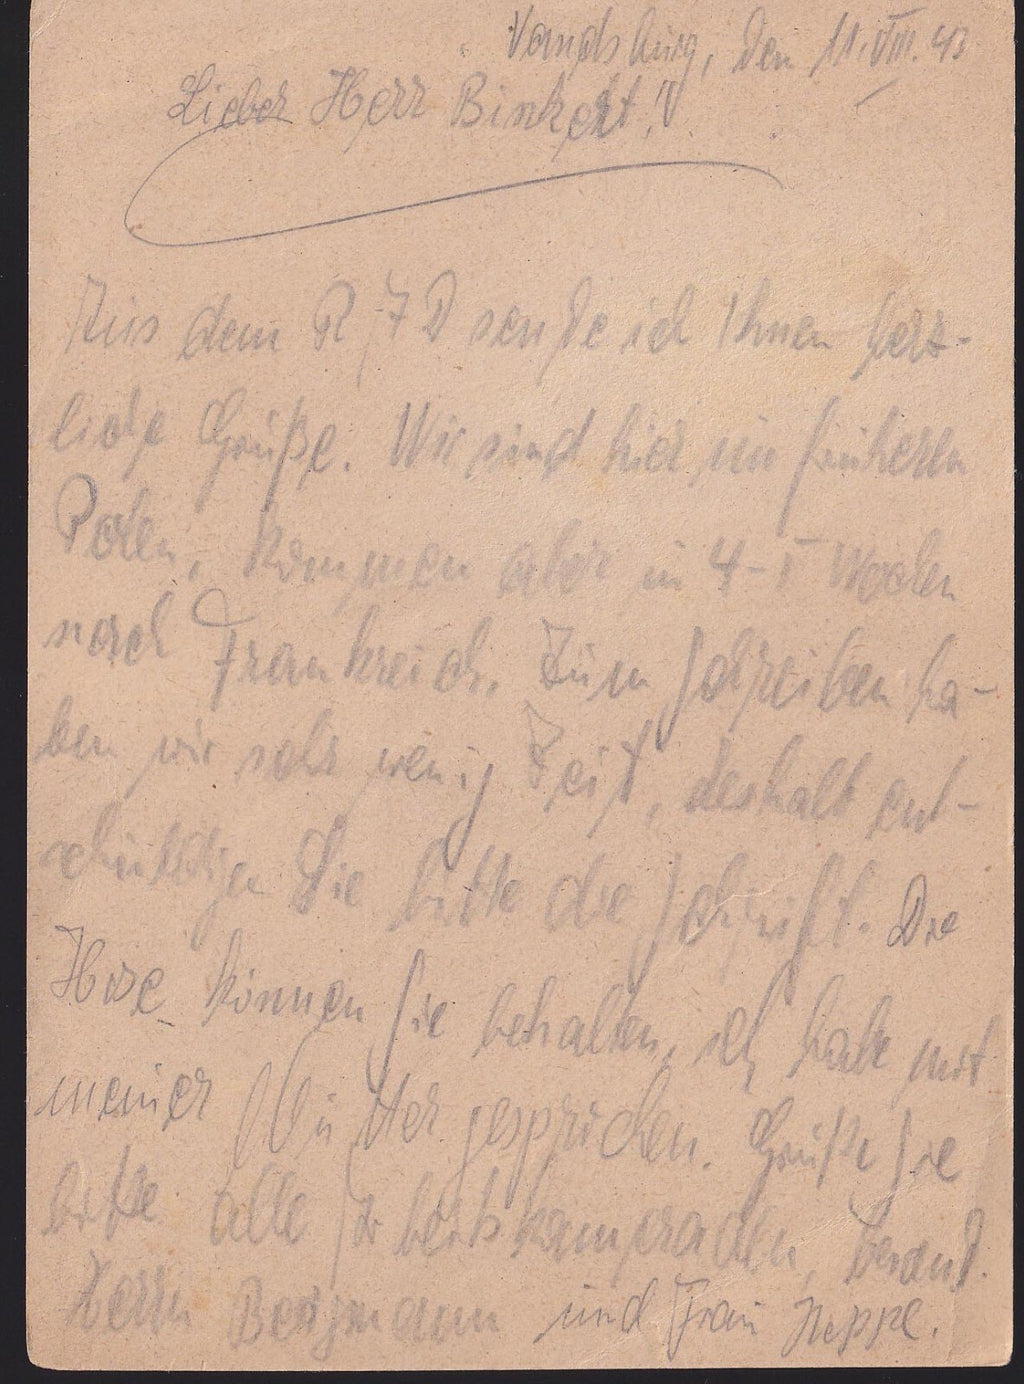 Vandsburg, den 11. VIII. 43
Lieber Herr Binkert!
Aus dem R A D sende ich Ihnen herz-
liche Grüße. Wir sind hier im früheren
Polen, kommen aber in 4-5 Wochen
nach Frankreich. Zum Schreiben ha-
ben wir sehr wenig Zeit, deshalb ent-
schuldigen Sie bitte die Schrift. Die
Hose können Sie behalten, ich habe mit
meiner Mutter gesprochen. Grüße Sie
bitte alle Arbeitskameraden, besond.
Herrn Bergmann und Frau Heppe.